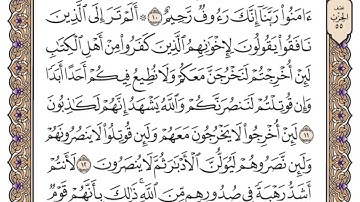 ءَامَنُوا۟ رَبَّنَآ إِنَّكَ رَءُوفٌ رَّحِيمٌ ۝١٠ ۞ أَلَمْ تَرَ إِلَى ٱلَّذِينَ
نَافَقُوا۟ يَقُولُونَ لِإِخْوَٰنِهِمُ ٱلَّذِينَ كَفَرُوا۟ مِنْ أَهْلِ ٱلْكِتَٰبِ
لَئِنْ أُخْرِجْتُمْ لَنَخْرُجَنَّ مَعَكُمْ وَلَا نُطِيعُ فِيكُمْ أَحَدًا أَبَدًا
وَإِن قُوتِلْتُمْ لَنَنصُرَنَّكُمْ وَٱللَّهُ يَشْهَدُ إِنَّهُمْ لَكَٰذِبُونَ
۝١١ لَئِنْ أُخْرِجُوا۟ لَا يَخْرُجُونَ مَعَهُمْ وَلَئِن قُوتِلُوا۟ لَا يَنصُرُونَهُمْ
وَلَئِن نَّصَرُوهُمْ لَيُوَلُّنَّ ٱلْأَدْبَٰرَ ثُمَّ لَا يُنصَرُونَ ۝١٢ لَأَنتُمْ
أَشَدُّ رَهْبَةً فِى صُدُورِهِم مِّنَ ٱللَّهِ ذَٰلِكَ بِأَنَّهُمْ قَوْمٌ
الحزب
٥٥